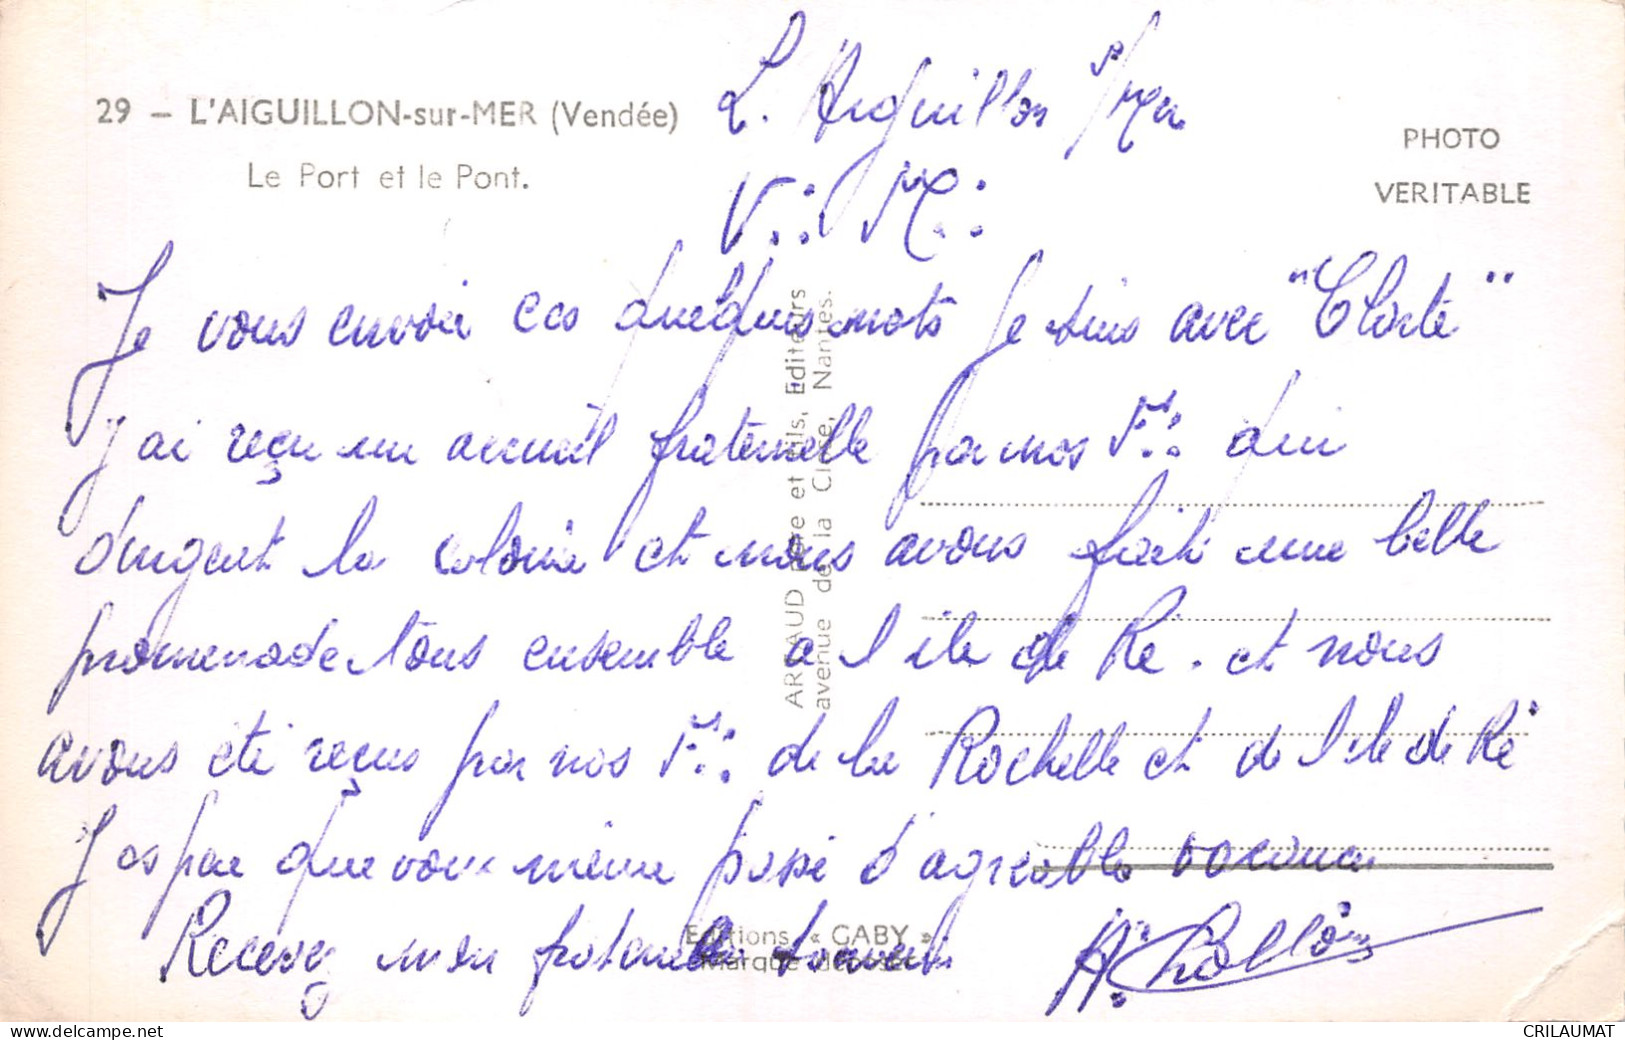 29 – L'AIGUILLON-sur-MER (Vendée)
Le Port et le Pont.
PHOTO
VERITABLE
L. Aiguillon s/Mer
V∴ M∴
Je vous envoie ces quelques mots Je suis avec "Clarté"
j'ai reçu un accueil fraternelle par nos F∴ qui
dirigent la colonie et nous avons fait une belle
promenade tous ensemble a l ile de Ré. et nous
avons été reçus par nos F∴ de la Rochelle et de l'ile de Ré
J espère que vous même passé d'agréable vacances
Recevez mon fraternelle souvenir
ARNAUD Père et Fils, Editeurs
avenue de la Close, Nantes.
Editions « GABY »
Marque déposée
CRILAUMAT